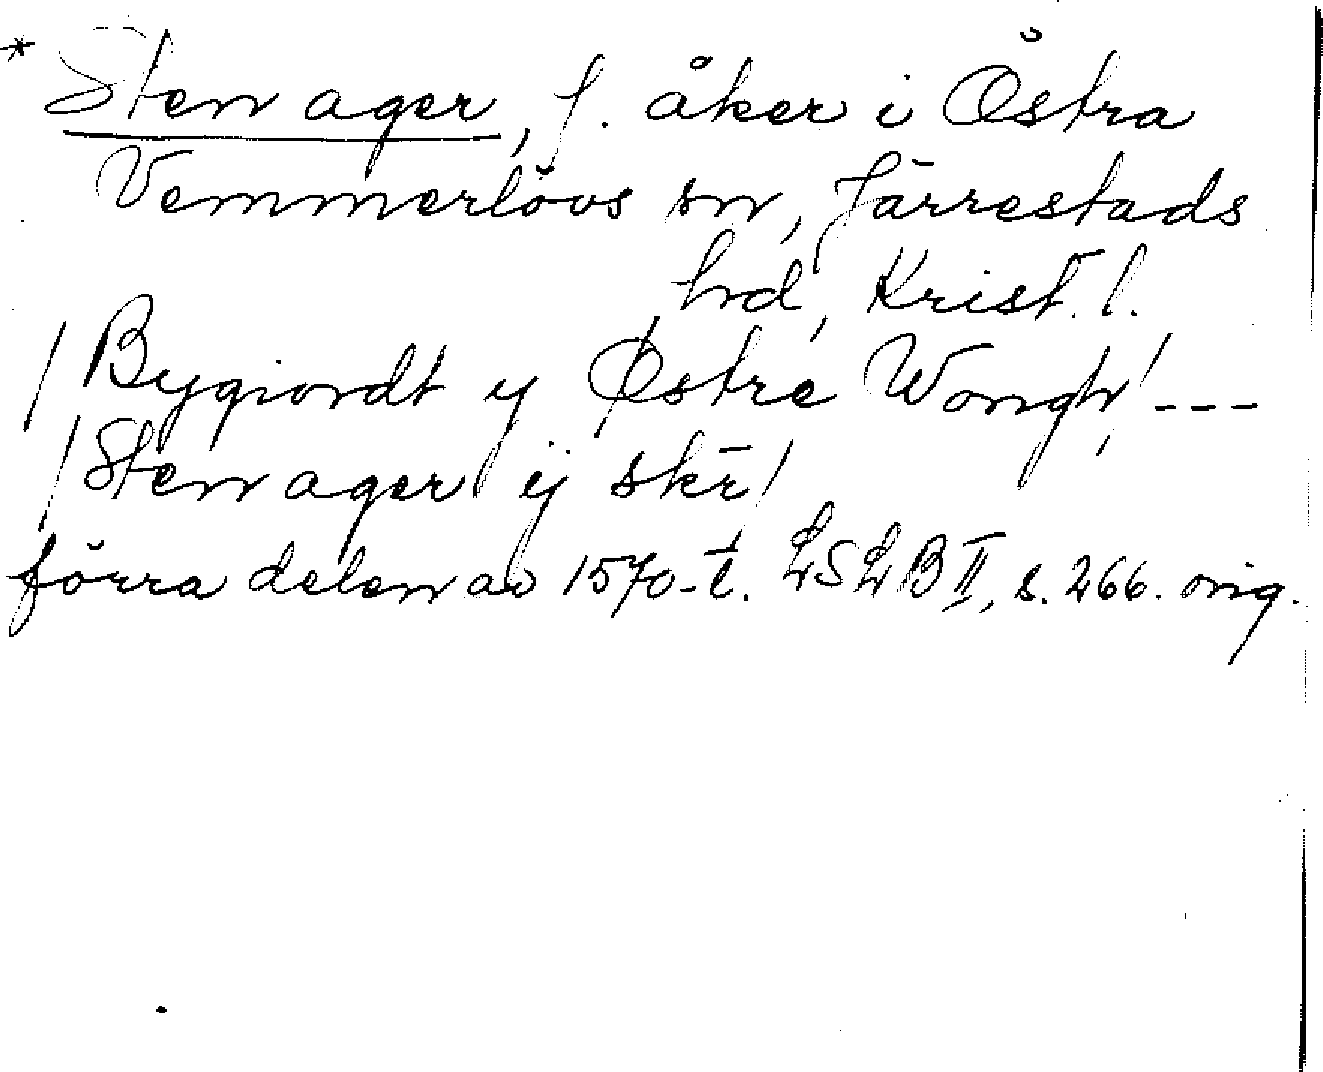 * Sten ager, f. åker i Östra
Vemmerlövs sn, Järrestads
hd, Krist. l.
/Bygiordt y Østre Wongh/ ---
/Sten ager ij skr/
förra delen av 1570-t. LSLB II, s. 266. orig.